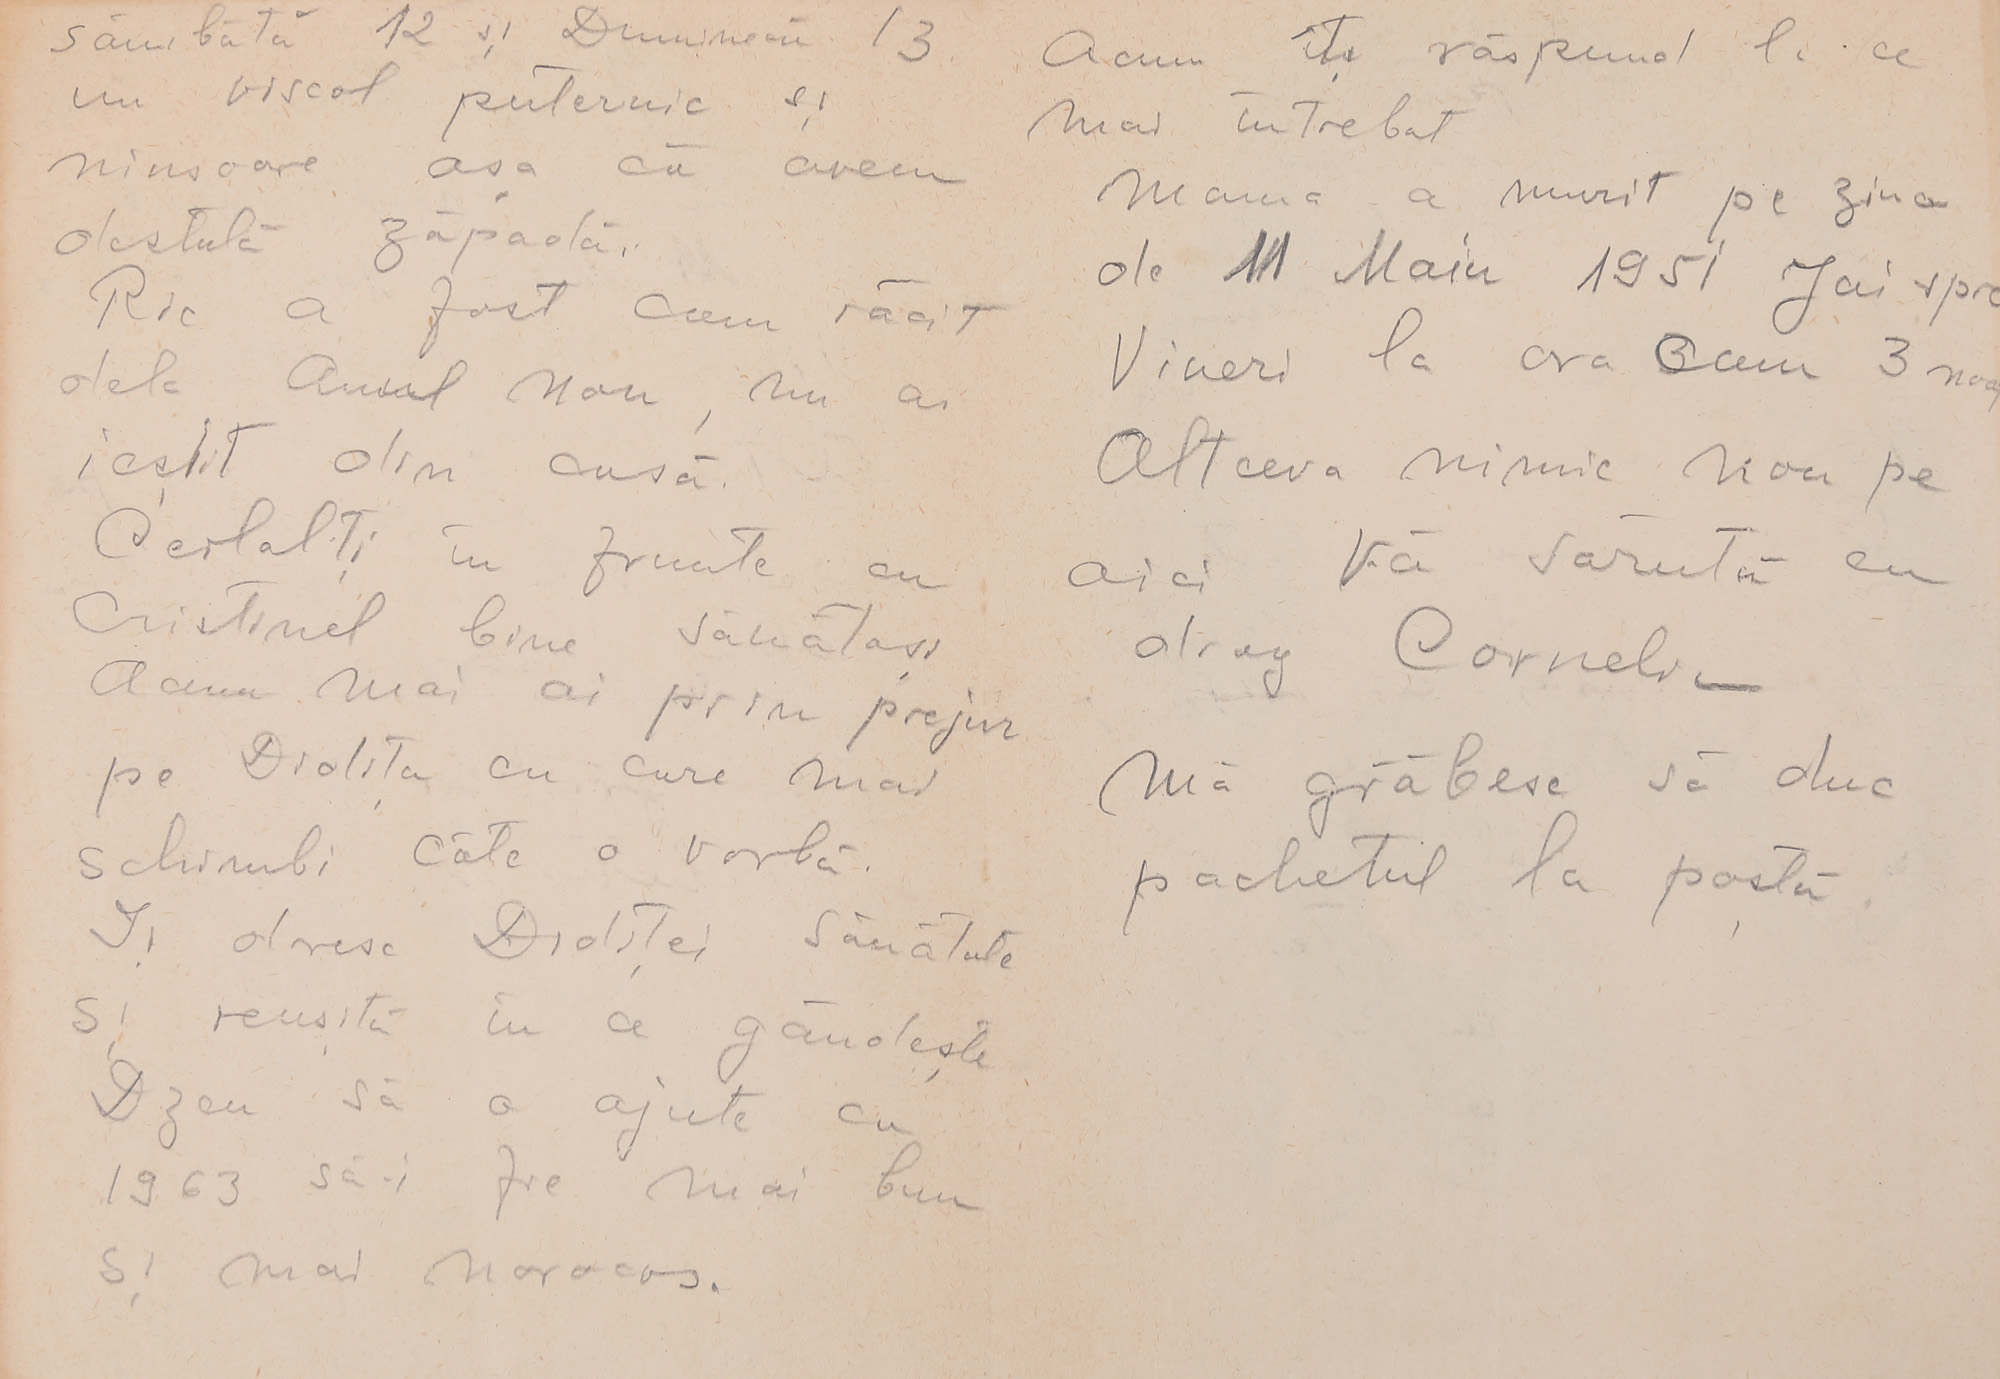 sâmbătă 12 și Duminecă 13.
un viscol puternic și
ninsoare așa că avem
destulă zăpadă.
Ric a fost cam răcit
dela Anul Nou, nu a
ieșit din casă.
Ceilalți în frunte cu
Cristinel bine sănătoși
Acum mai ai prin prejur
pe Didița cu care mai
schimbi câte o vorbă.
Îi doresc Didiței sănătate
și reușită în ce gândește
Dzeu să o ajute cu
1963 să-i fie mai bun
și mai norocos.
Acum îți răspund la ce
mai întrebat
Mama a murit pe ziua
de 11 Maiu 1951 Joi spre
Vineri la ora cam 3 noap
Altceva nimic nou pe
aici Vă sărută cu
drag Corneliu
Mă grăbesc să duc
pachetul la poștă.